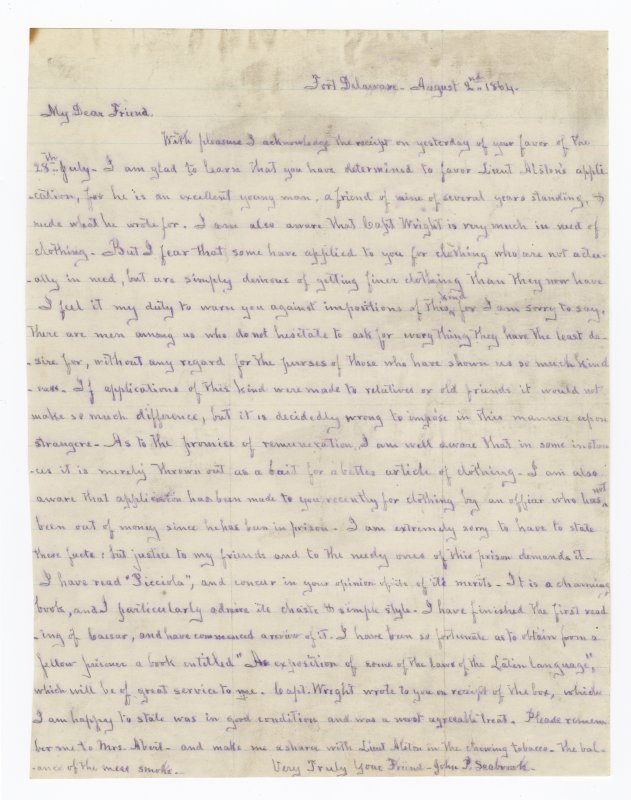 Fort Delaware - August 2nd 1864.
My Dear Friend.
With pleasure I acknowledge the receipt on yesterday of your favor of the
28th July - I am glad to learn that you have determined to favor Lieut Alston's appli
-cation, for he is an excellent young man, a friend of mine of several years standing, &
needs what he wrote for. I am also aware that Capt Wright is very much in need of
clothing - But I fear that some have applied to you for clothing who are not actu-
-ally in need, but are simply desirous of getting finer clothing than they now have
I feel it my duty to warn you against impositions of this kind for I am sorry to say,
there are men among us who do not hesitate to ask for everything they have the least de-
sire for, without any regard for the purses of those who have shown us so much kind
-ness - If applications of this kind were made to relatives or old friends it would not
make so much difference, but it is decidedly wrong to impose in this manner upon
strangers - As to the promise of remuneration, I am well aware that in some instan
-ces it is merely thrown out as a bait for a better article of clothing - I am also
aware that application has been made to you recently for clothing by an officer who has not
been out of money since he has been in prison - I am extremely sorry to have to state
these facts: but justice to my friends and to the needy ones of this prison demands it -
I have read "Picciola", and concur in your opinion of its merits - It is a charming
book, and I particularly admire its chaste & simple style - I have finished the first read
-ing of Caesar, and have commenced a review of it. I have been so fortunate as to obtain from a
fellow prisoner a book entitled "An exposition of some of the laws of the Latin language",
which will be of great service to me. Capt. Wright wrote to you on receipt of the box, which
I am happy to state was in good condition and was a most agreeable treat. Please remem
ber me to Mrs. - and make me a share with Lieut Alston in the chewing tobacco - the bal-
-ance of the mess smoke. Very Truly Your Friend - John P. Seabrook -